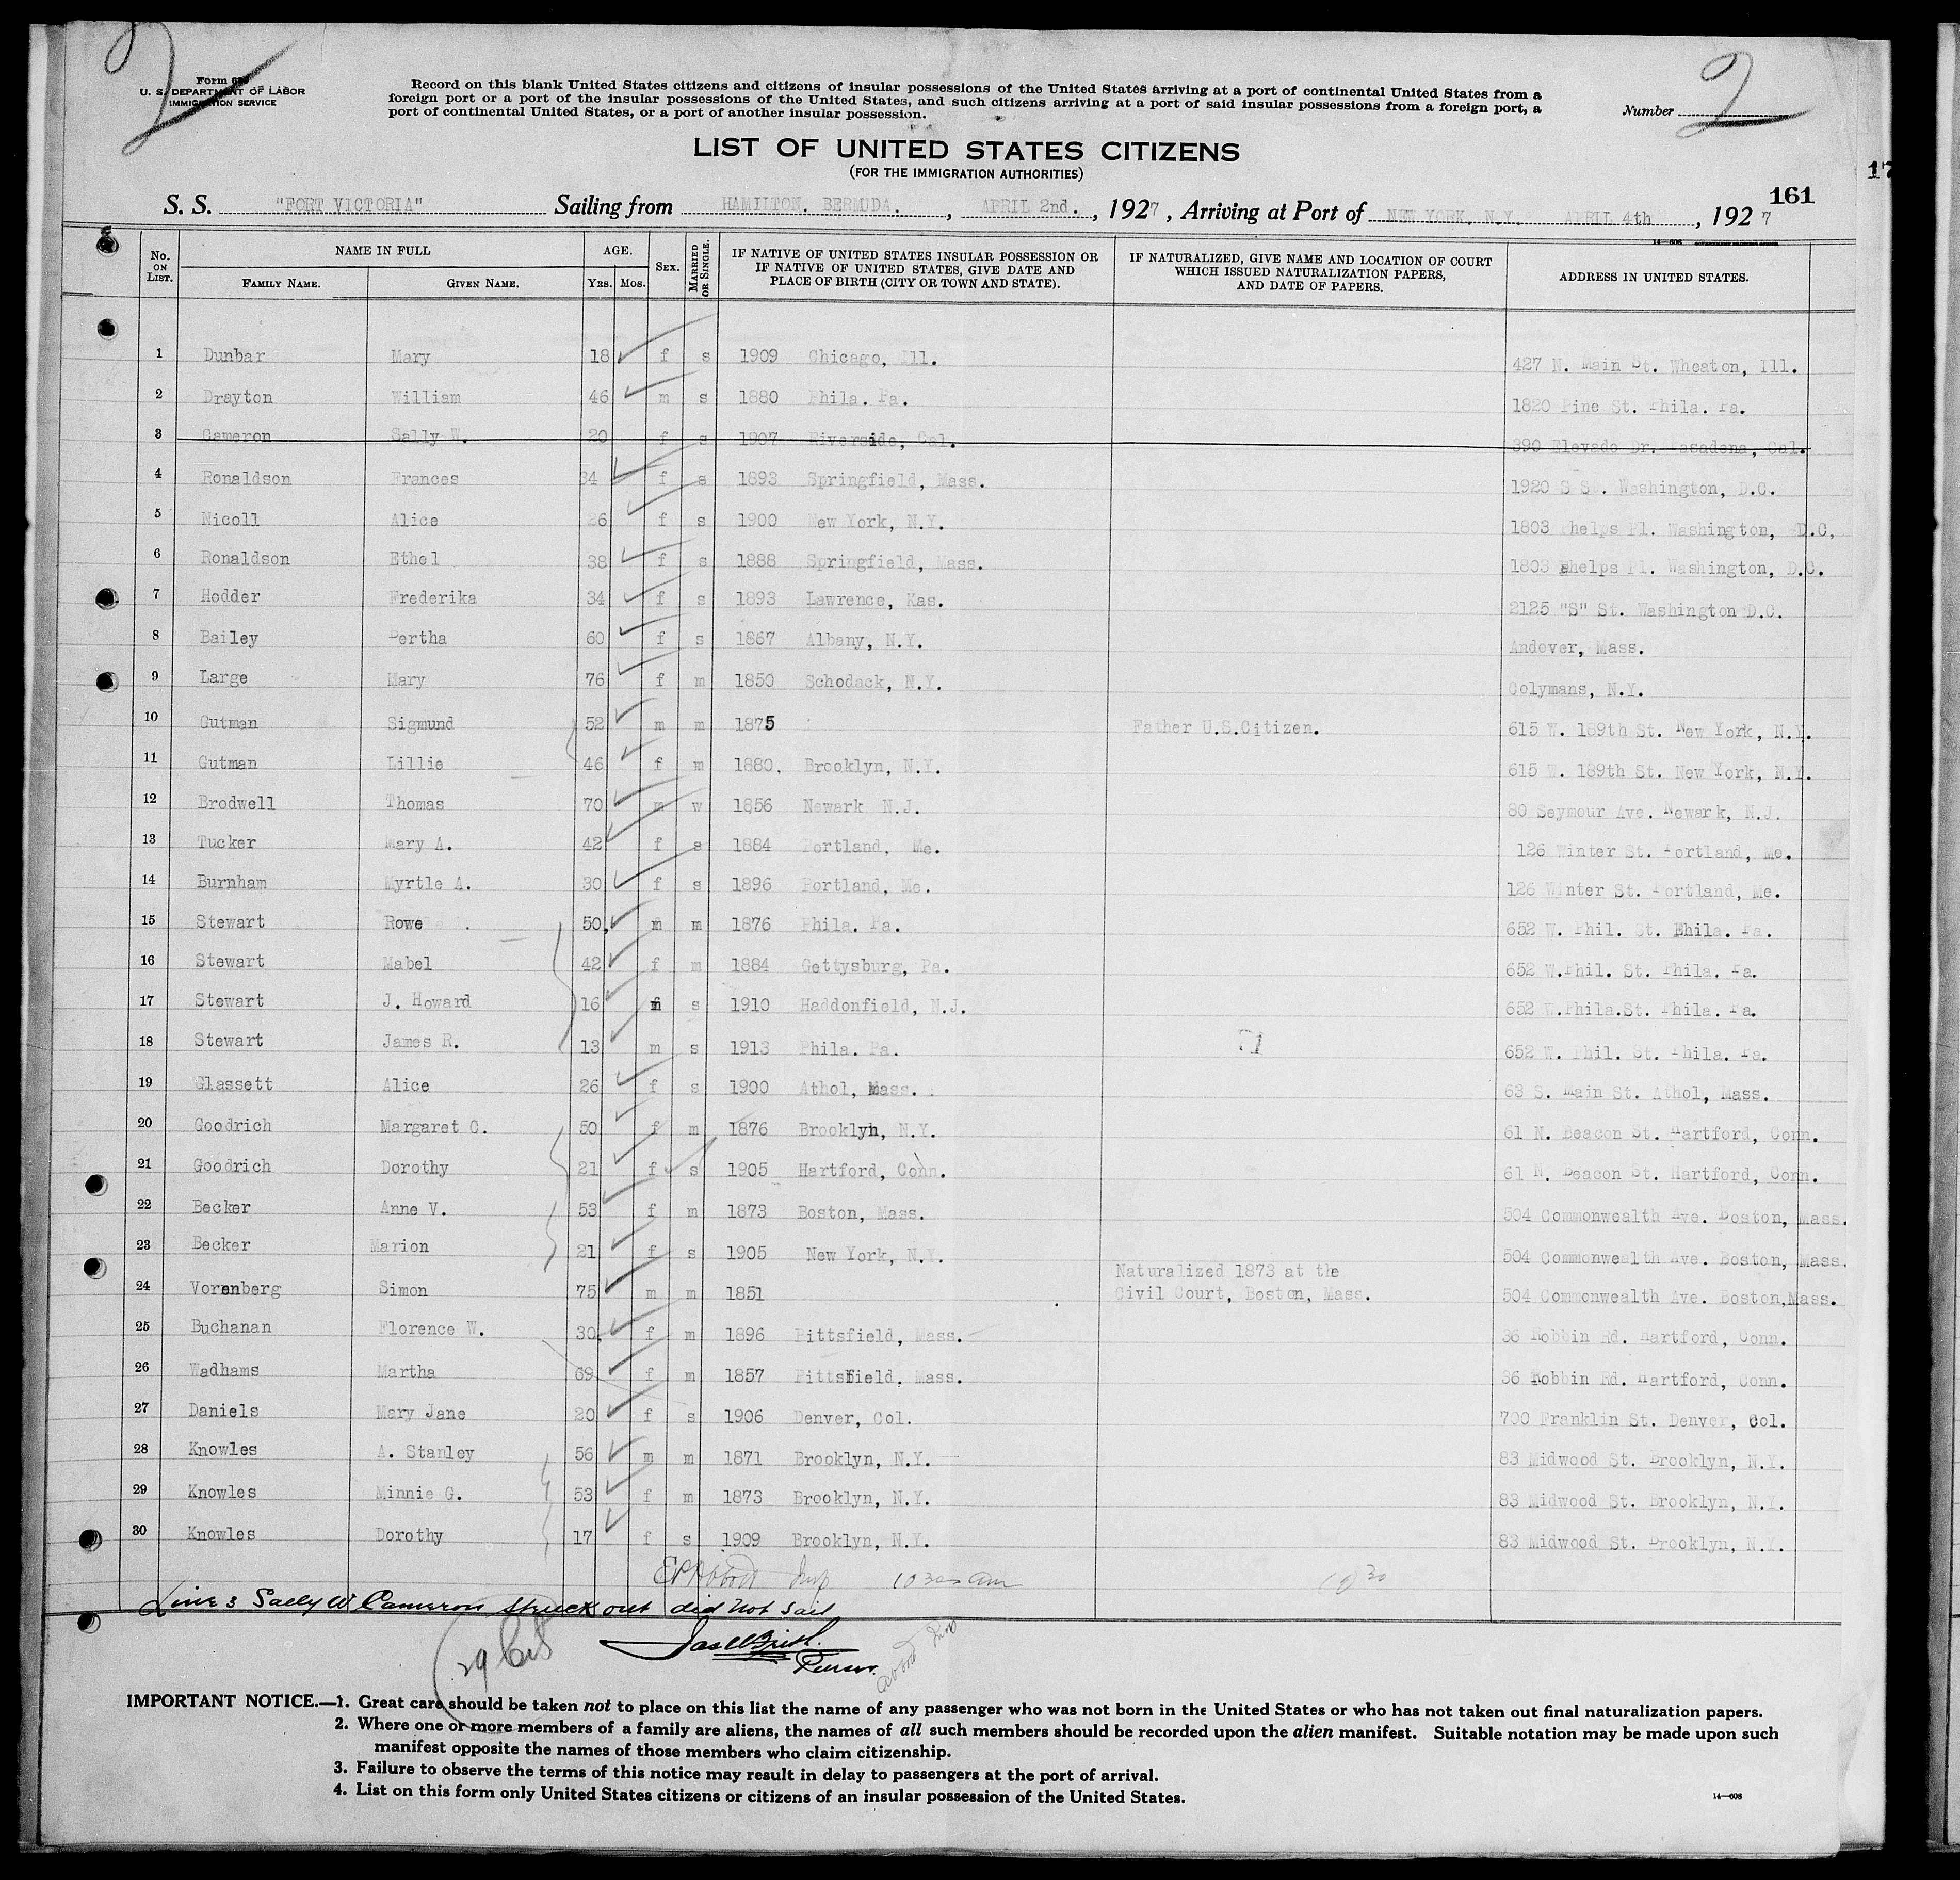 2
Form 630
U. S. DEPARTMENT OF LABOR
IMMIGRATION SERVICE
Record on this blank United States citizens and citizens of insular possessions of the United States arriving at a port of continental United States from a
foreign port or a port of the insular possessions of the United States, and such citizens arriving at a port of said insular possessions from a foreign port, a
port of continental United States, or a port of another insular possession.
Number 2
LIST OF UNITED STATES CITIZENS
(FOR THE IMMIGRATION AUTHORITIES)
17
161
S. S. "FORT VICTORIA" Sailing from HAMILTON. BERMUDA. , APRIL 2nd. , 1927 , Arriving at Port of NEW YORK, N.Y. APRIL 4th , 1927
14—608 GOVERNMENT PRINTING OFFICE
No. ON LIST. NAME IN FULL AGE. SEX. MARRIED OR SINGLE. IF NATIVE OF UNITED STATES INSULAR POSSESSION OR IF NATIVE OF UNITED STATES, GIVE DATE AND PLACE OF BIRTH (CITY OR TOWN AND STATE). IF NATURALIZED, GIVE NAME AND LOCATION OF COURT WHICH ISSUED NATURALIZATION PAPERS, AND DATE OF PAPERS. ADDRESS IN UNITED STATES.
FAMILY NAME. GIVEN NAME. YRS. MOS.
1 Dunbar Mary 18 f s 1909 Chicago, Ill. 427 N. Main St. Wheaton, Ill.
2 Drayton William 46 m s 1880 Phila. Pa. 1820 Pine St. Phila. Pa.
3 Cameron Sally W. 20 f s 1907 Riverside, Cal. 390 Elevado Dr. Pasadena, Cal.
4 Ronaldson Frances 34 f s 1893 Springfield, Mass. 1920 S St. Washington, D.C.
5 Nicoll Alice 26 f s 1900 New York, N.Y. 1803 Phelps Pl. Washington, D.C.
6 Ronaldson Ethel 38 f s 1888 Springfield, Mass. 1803 Phelps Pl. Washington, D.C.
7 Hodder Frederika 34 f s 1893 Lawrence, Kas. 2125 "S" St. Washington D.C.
8 Bailey Bertha 60 f s 1867 Albany, N.Y. Andover, Mass.
9 Large Mary 76 f m 1850 Schodack, N.Y. Colymans, N.Y.
10 Gutman Sigmund 52 m m 1875 Father U.S.Citizen. 615 W. 189th St. New York, N.Y.
11 Gutman Lillie 46 f m 1880. Brooklyn, N.Y. 615 W. 189th St. New York, N.Y.
12 Brodwell Thomas 70 m w 1856 Newark N.J. 80 Seymour Ave. Newark, N.J.
13 Tucker Mary A. 42 f s 1884 Portland, Me. 126 Winter St. Portland, Me.
14 Burnham Myrtle A. 30 f s 1896 Portland, Me. 126 Winter St. Portland, Me.
15 Stewart Rowe 50 m m 1876 Phila. Pa. 652 W. Phil. St. Phila. Pa.
16 Stewart Mabel 42 f m 1884 Gettysburg, Pa. 652 W.Phil. St. Phila. Pa.
17 Stewart J. Howard 16 m s 1910 Haddonfield, N.J. 652 W.Phila.St. Phila. Pa.
18 Stewart James R. 13 m s 1913 Phila. Pa. 652 W. Phil. St. Phila. Pa.
19 Glassett Alice 26 f s 1900 Athol, Mass. 63 S. Main St. Athol, Mass.
20 Goodrich Margaret C. 50 f m 1876 Brooklyn, N.Y. 61 N. Beacon St. Hartford, Conn.
21 Goodrich Dorothy 21 f s 1905 Hartford, Conn. 61 N. Beacon St. Hartford, Conn.
22 Becker Anne V. 53 f m 1873 Boston, Mass. 504 Commonwealth Ave. Boston, Mass.
23 Becker Marion 21 f s 1905 New York, N.Y. 504 Commonwealth Ave. Boston, Mass.
24 Vorenberg Simon 75 m m 1851 Naturalized 1873 at the Civil Court, Boston, Mass. 504 Commonwealth Ave. Boston,Mass.
25 Buchanan Florence W. 30 f m 1896 Pittsfield, Mass. 36 Robbin Rd. Hartford, Conn.
26 Wadhams Martha 69 f m 1857 Pittsfield. Mass. 36 Robbin Rd. Hartford, Conn.
27 Daniels Mary Jane 20 f s 1906 Denver, Col. 700 Franklin St. Denver, Col.
28 Knowles A. Stanley 56 m m 1871 Brooklyn, N.Y. 83 Midwood St. Brooklyn, N.Y.
29 Knowles Minnie G. 53 f m 1873 Brooklyn, N.Y. 83 Midwood St. Brooklyn, N.Y.
30 Knowles Dorothy 17 f s 1909 Brooklyn, N.Y. 83 Midwood St. Brooklyn, N.Y.
Insp 10 30 am 10 30
Line 3 Sally W Cameron struck out did not sail
29
Purser.
IMPORTANT NOTICE.—1. Great care should be taken not to place on this list the name of any passenger who was not born in the United States or who has not taken out final naturalization papers.
2. Where one or more members of a family are aliens, the names of all such members should be recorded upon the alien manifest. Suitable notation may be made upon such
manifest opposite the names of those members who claim citizenship.
3. Failure to observe the terms of this notice may result in delay to passengers at the port of arrival.
4. List on this form only United States citizens or citizens of an insular possession of the United States.
14—608